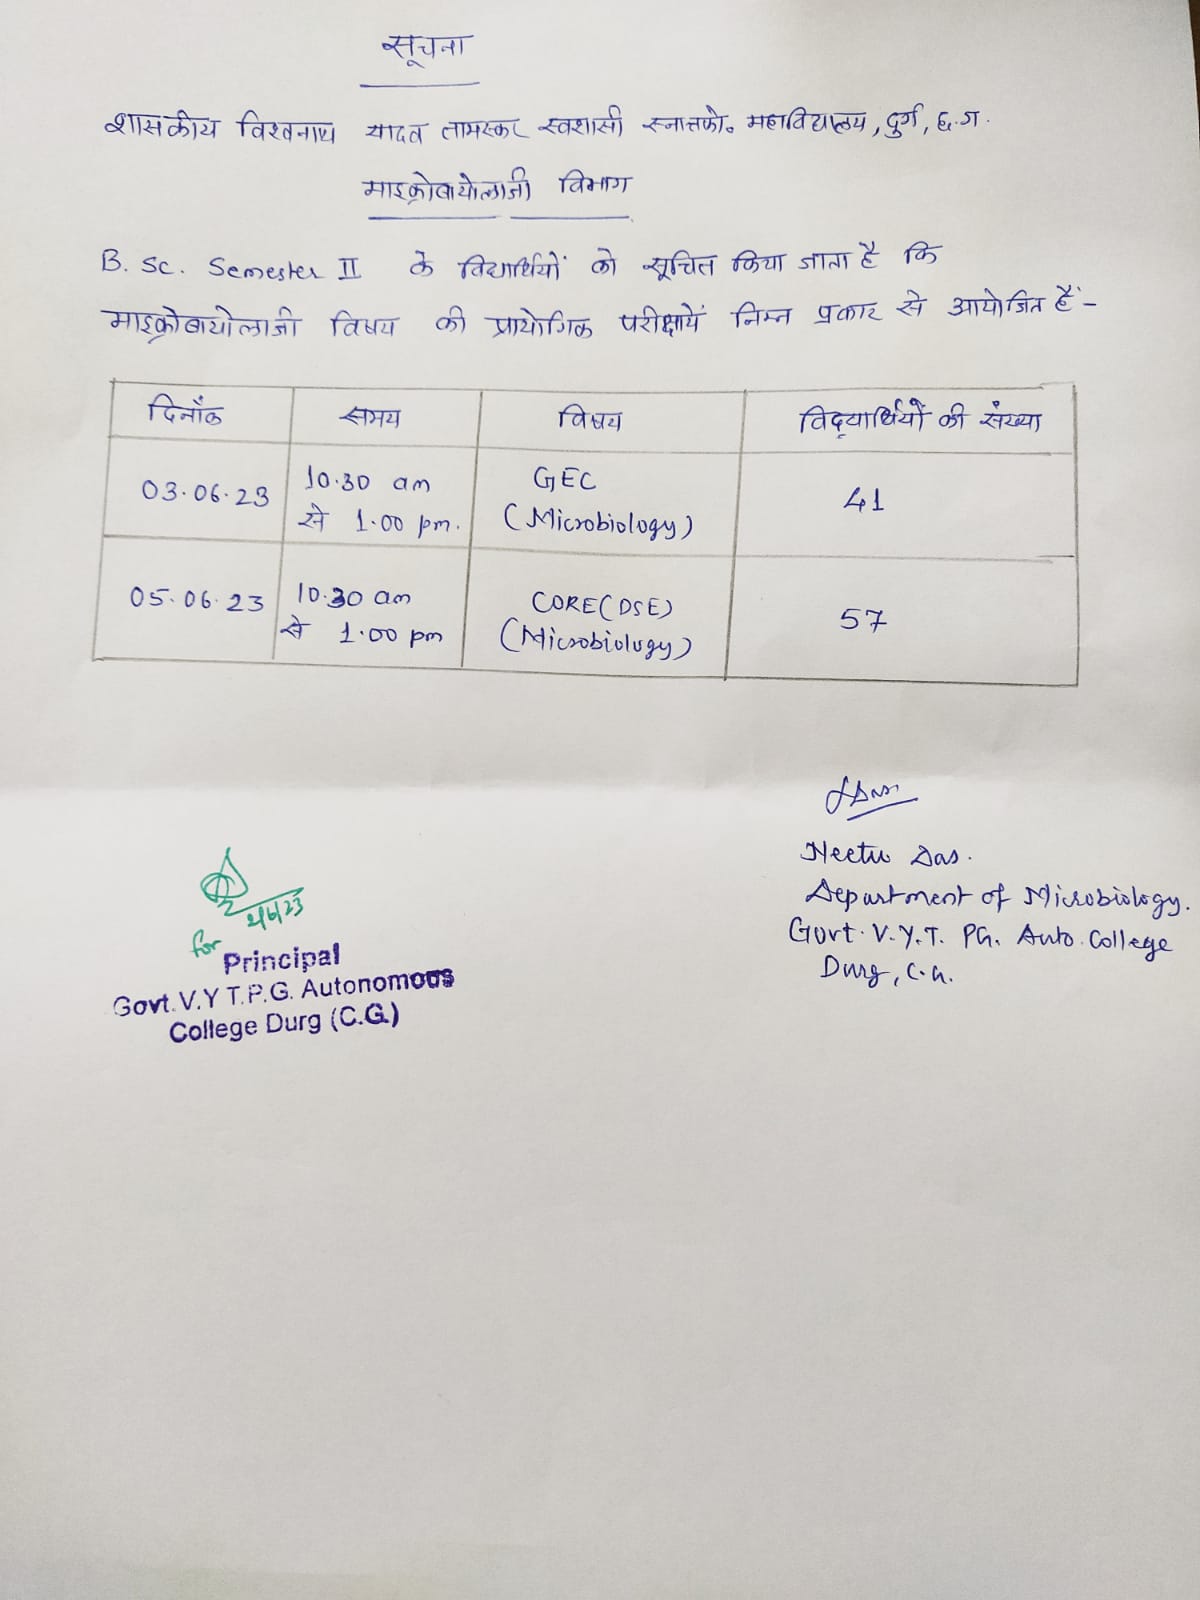 सूचना
शासकीय विश्वनाथ यादव तामस्कर स्वशासी स्नातको. महाविद्यालय, दुर्ग, छ.ग.
माइक्रोबायोलाजी विभाग
B. Sc. Semester II के विद्यार्थियों को सूचित किया जाता है कि
माइक्रोबायोलाजी विषय की प्रायोगिक परीक्षायें निम्न प्रकार से आयोजित हैं:-
दिनाँक समय विषय विद्यार्थियों की संख्या
03.06.23 10.30 am से 1.00 pm. GEC (Microbiology) 41
05.06.23 10.30 am से 1.00 pm CORE(DSE) (Microbiology) 57
Neetu Das.
Department of Microbiology.
Govt. V.Y.T. PG. Auto. College
Durg, C.G.
2/6/23
for
Principal
Govt. V.Y T.P.G. Autonomous
College Durg (C.G.)